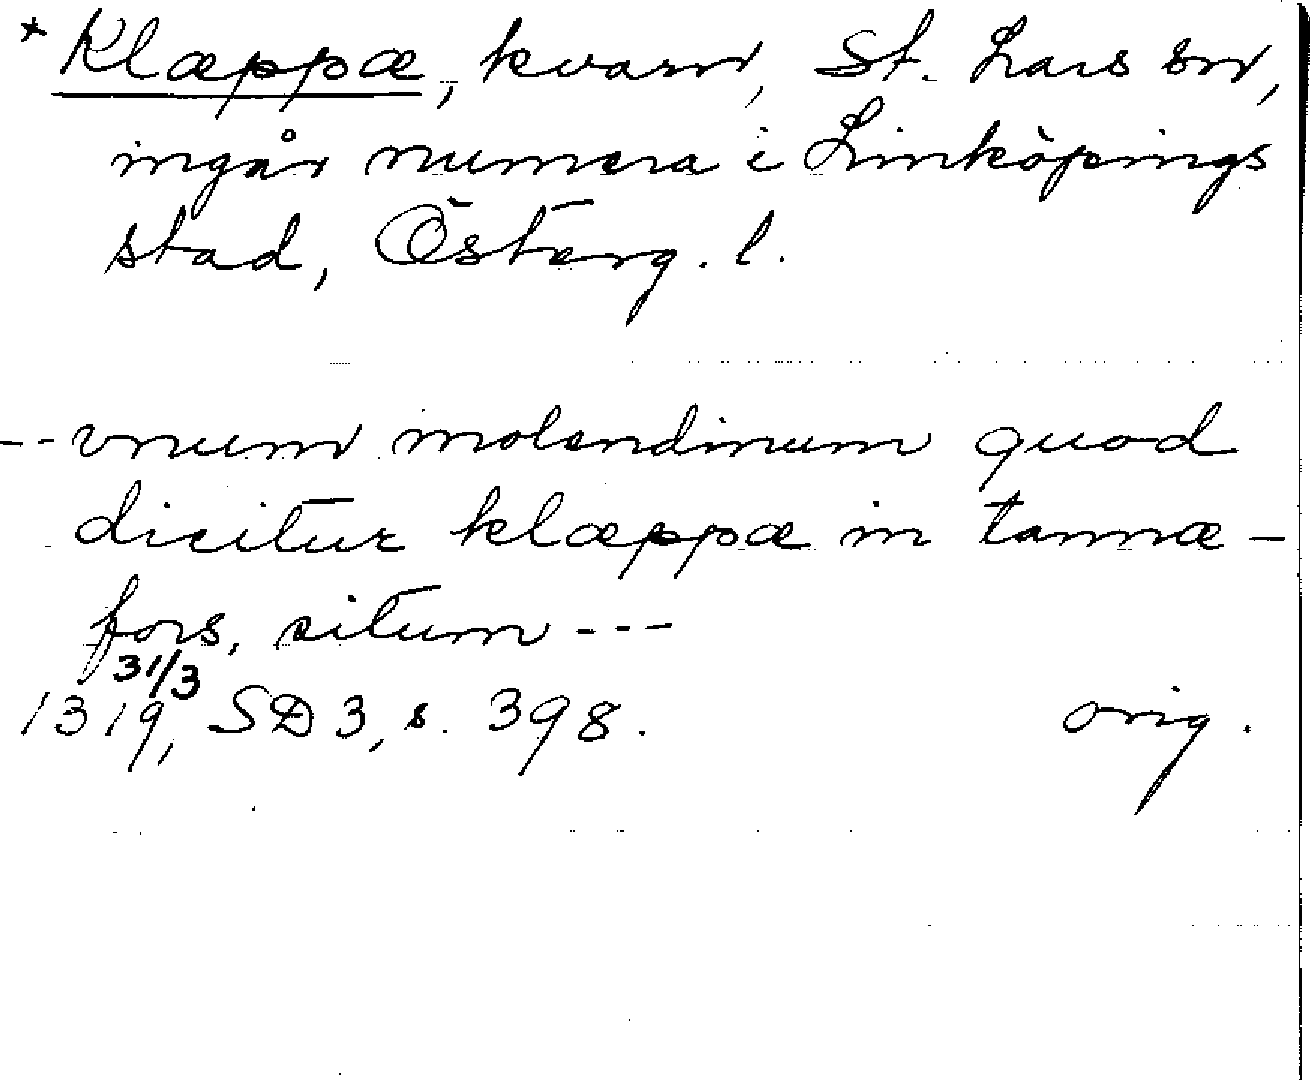 * Klæppæ, kvarn, St. Lars sn,
ingår numera i Linköpings
stad, Österg. l.
--- vnum molendinum quod
dicitur klæppæ in tannæ-
fors, situm ---
31/3
1319, SD 3, s. 398. orig.